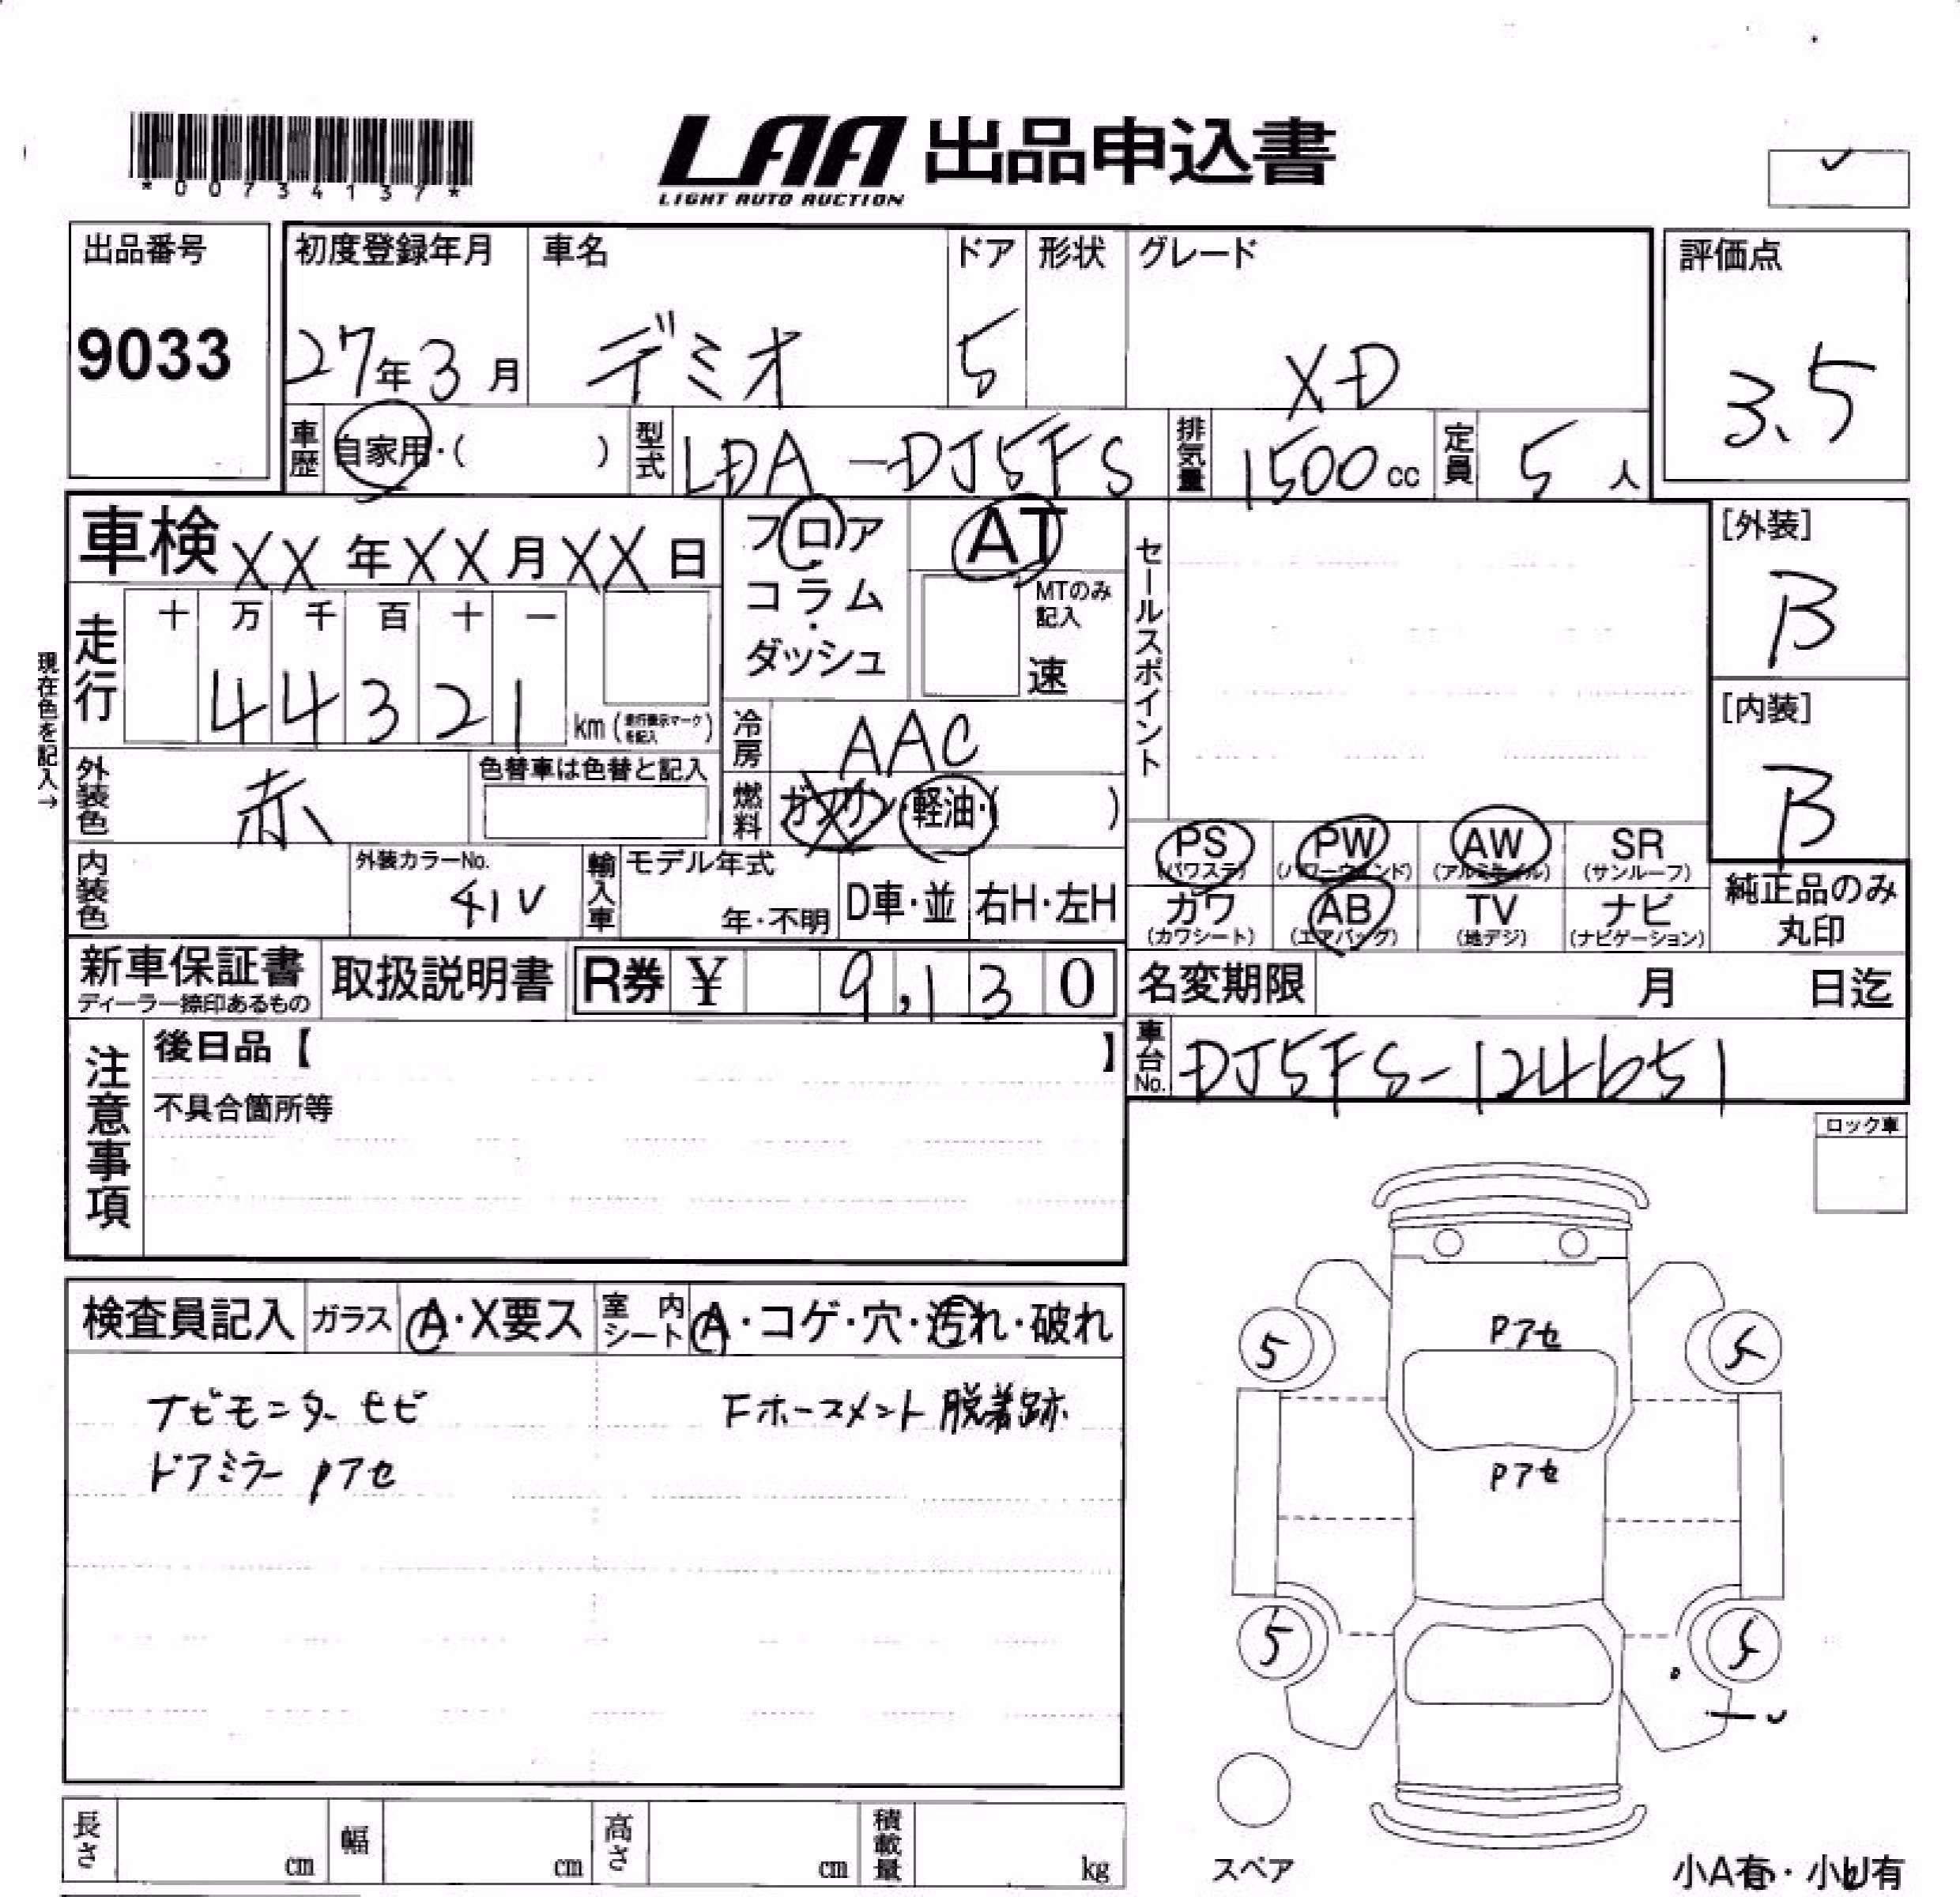 *00734137*
LAA 出品申込書
LIGHT AUTO AUCTION
出品番号
9033
初度登録年月
27年3月
車名
デミオ
ドア
5
形状
グレード
XD
評価点
3.5
車歴
自家用・( )
型式
LDA-DJ5FS
排気量
1500cc
定員
5人
車検 XX年XX月XX日
フロア・コラム・ダッシュ
AT
MTのみ記入
速
セールスポイント
[外装]
B
[内装]
B
現在色を記入→
走行
十 万 千 百 十 一
44321
km(走行表示マークを記入)
冷房
AAC
外装色
赤
色替車は色替と記入
燃料
ガソリン・軽油・( )
内装色
外装カラーNo.
41V
輸入車
モデル年式
年・不明
D車・並
右H・左H
PS (パワステ)
PW (パワーウィンド)
AW (アルミホイル)
SR (サンルーフ)
カワ (カワシート)
AB (エアバッグ)
TV (地デジ)
ナビ (ナビゲーション)
純正品のみ丸印
新車保証書
ディーラー捺印あるもの
取扱説明書
R券 ¥ 9,130
名変期限 月 日迄
車台No.
DJ5FS-124651
注意事項
後日品【 】
不具合箇所等
ロック車
検査員記入
ガラス
A・X要ス
室内シート
A・コゲ・穴・汚れ・破れ
ナビモニター セビ
Fホースメント脱着跡
ドアミラー Pアセ
Pアセ
Pアセ
5
5
5
5
スペア
長さ cm
幅 cm
高さ cm
積載量 kg
小A有・小U有